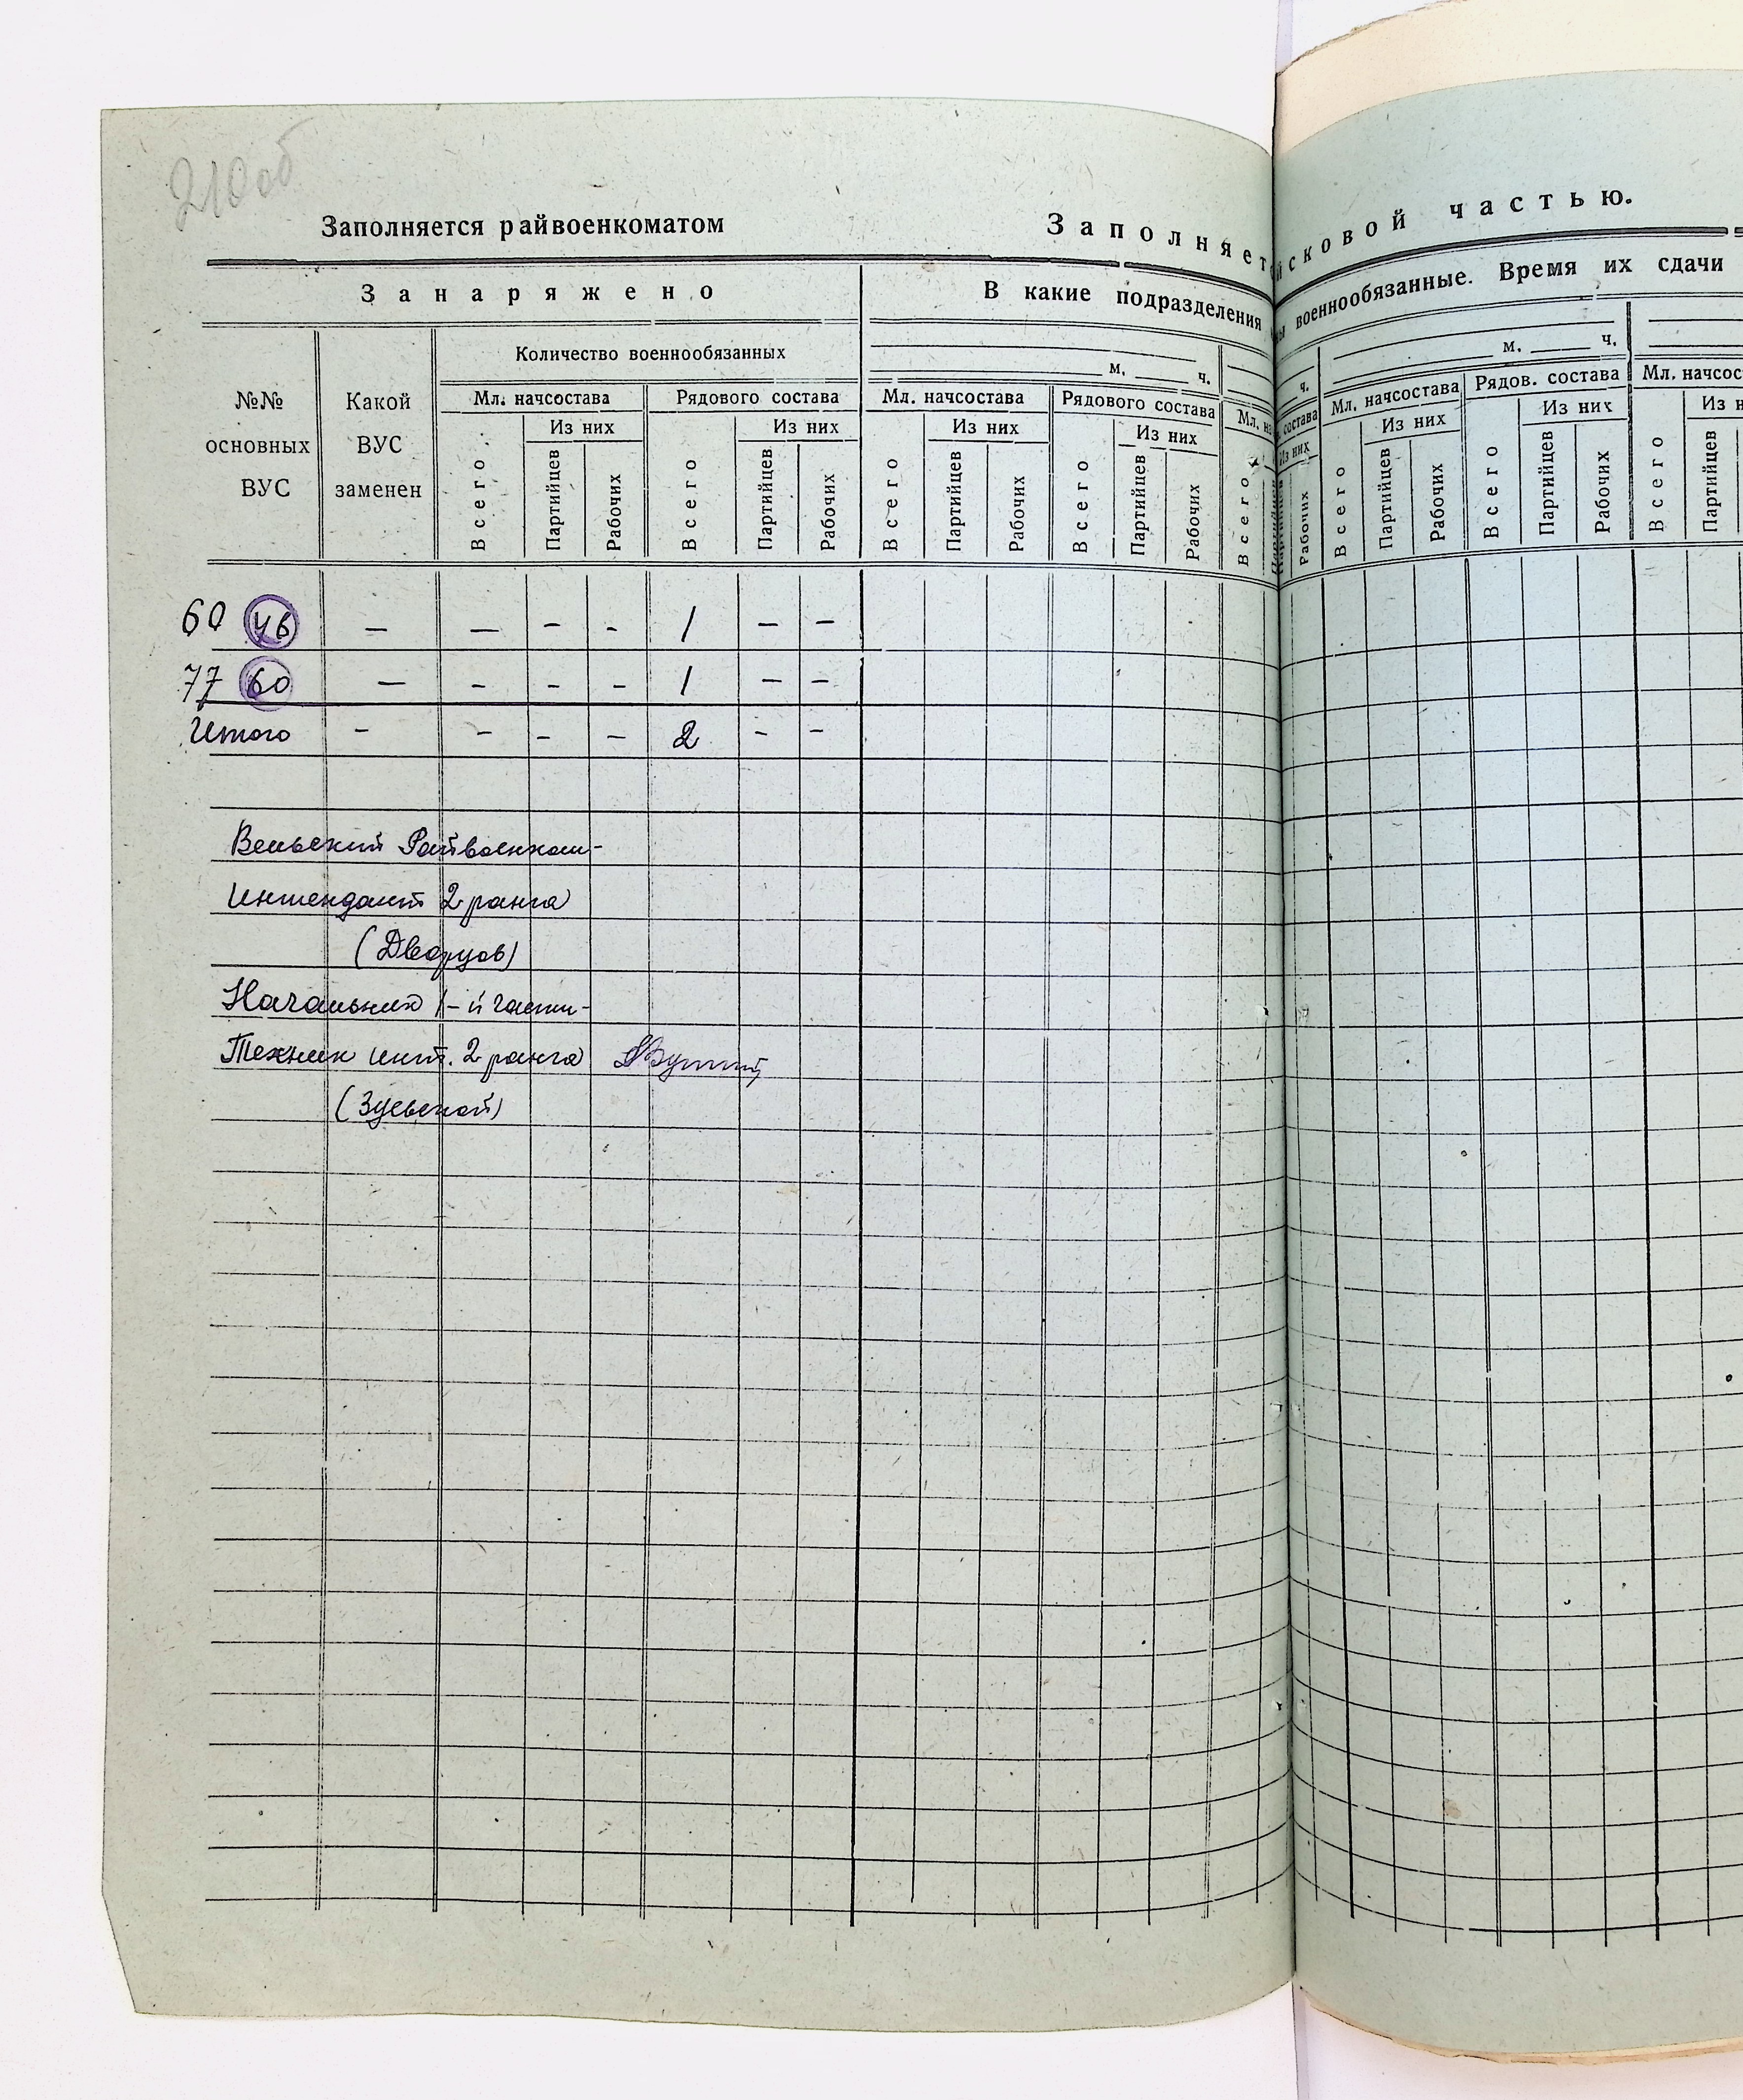 210об
Заполняется райвоенкоматом
Заполняет
йсковой частью.
Занаряжено
В какие подразделения
военнообязанные. Время их сдачи
№№ основных ВУС
Какой ВУС заменен
Количество военнообязанных
Мл. начсостава
Рядового состава
Из них
Из них
Всего
Партийцев
Рабочих
Всего
Партийцев
Рабочих
м. ч.
Мл. начсостава
Рядового состава
Из них
Из них
Всего
Партийцев
Рабочих
Всего
Партийцев
Рабочих
Мл. на
Всего
ч.
состава
Из них
Рабочих
м. ч.
Мл. начсостава
Рядов. состава
Из них
Из них
Всего
Партийцев
Рабочих
Всего
Партийцев
Рабочих
Мл. начсос
Из н
Всего
Партийцев
60 46 — — — - 1 — —
77 60 — - - - 1 — —
Итого - - - - 2 - -
Вельский Райвоенком-
Интендант 2 ранга
(Дворцов)
Начальник 1-й части-
Техник инт. 2 ранга